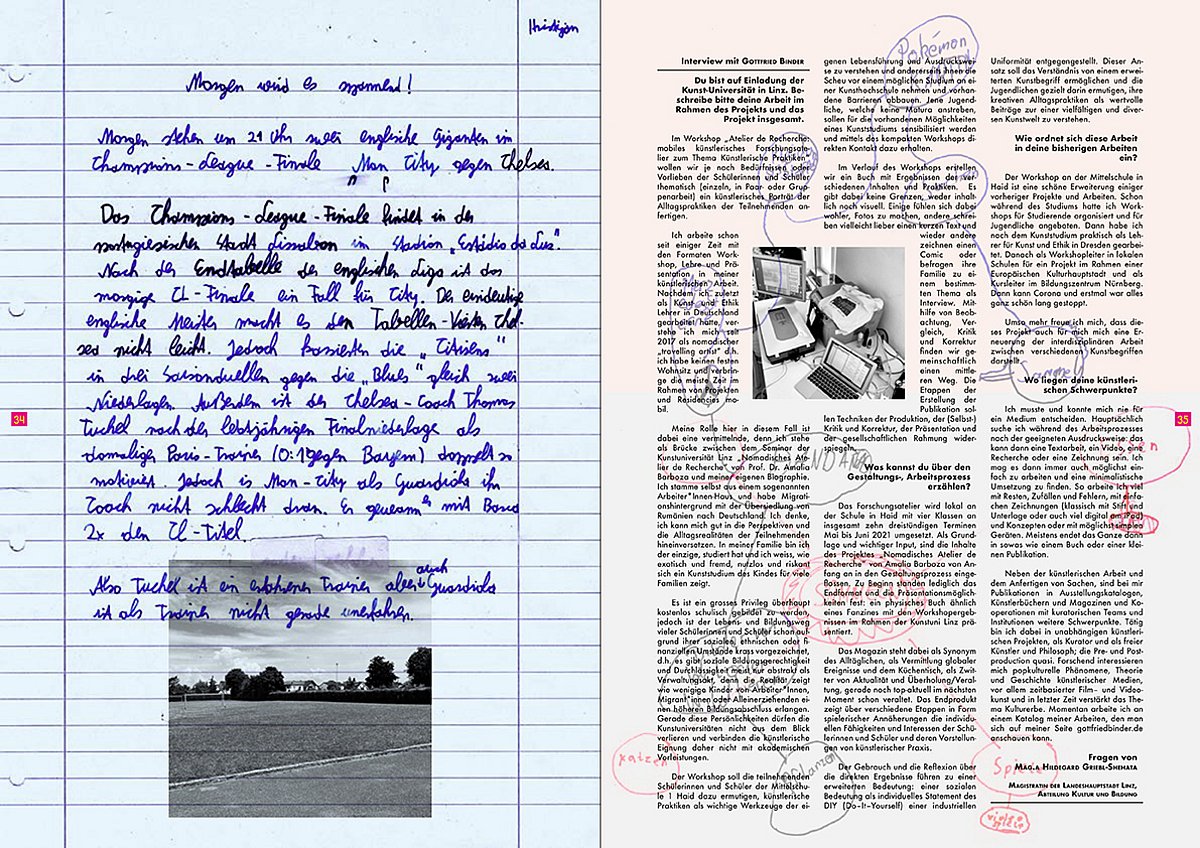 Morgen wird es spannend!
Morgen stehen um 21 Uhr zwei englische Giganten im
Champions-League-Finale Man City gegen Chelsea.
Das Champions-League-Finale findet in der
portugiesischen Stadt Lissabon im Stadion „Estádio da Luz".
Nach der Endtabelle der englischen Liga ist das
morgige CL-Finale ein Fall für City. Der eindeutige
englische Meister macht es den Tabellen-Vierten Chel-
sea nicht leicht. Jedoch kassierten die „Citizens"
in drei Saisonduellen gegen die „Blues" gleich zwei
Niederlagen. Außerdem ist der Chelsea-Coach Thomas
Tuchel nach der letztjährigen Finalniederlage als
damaliger Paris-Trainer (0:1 gegen Bayern) doppelt so
motiviert. Jedoch is Man-City als Guardiola ihr
Coach nicht schlecht dran. Er gewann mit Barca
2x den CL-Titel.
Also Tuchel ist ein erfahrener Trainer aber auch Guardiola
ist als Trainer nicht gerade unerfahren.
34
Interview mit Gottfried Binder
Du bist auf Einladung der
Kunst-Universität in Linz. Be-
schreibe bitte deine Arbeit im
Rahmen des Projekts und das
Projekt insgesamt.
Im Workshop „Atelier de Recherche:
mobiles künstlerisches Forschungsate-
lier zum Thema Künstlerische Praktiken"
wollen wir je nach Bedürfnissen oder
Vorlieben der Schülerinnen und Schüler
thematisch (einzeln, in Paar- oder Grup-
penarbeit) ein künstlerisches Porträt der
Alltagspraktiken der Teilnehmenden an-
fertigen.
Ich arbeite schon
seit einiger Zeit mit
den Formaten Work-
shop, Lehre und Prä-
sentation in meiner
künstlerischen Arbeit.
Nachdem ich zuletzt
als Kunst- und Ethik
Lehrer in Deutschland
gearbeitet hatte, ver-
stehe ich mich seit
2017 als nomadischer
„travelling artist" d.h.
ich habe keinen festen
Wohnsitz und verbrin-
ge die meiste Zeit im
Rahmen von Projekten
und Residencies mo-
bil.
Meine Rolle hier in diesem Fall ist
dabei eine vermittelnde, denn ich stehe
als Brücke zwischen dem Seminar der
Kunstuniversität Linz „Nomadisches Ate-
lier de Recherche" von Prof. Dr. Amalia
Barboza und meiner eigenen Biographie.
Ich stamme selbst aus einem sogenannten
Arbeiter*Innen-Haus und habe Migrati-
onshintergrund mit der Übersiedlung von
Rumänien nach Deutschland. Ich denke,
ich kann mich gut in die Perspektiven und
die Alltagsrealitäten der Teilnehmenden
hineinversetzen. In meiner Familie bin ich
der einzige, studiert hat und ich weiss, wie
exotisch und fremd, nutzlos und riskant
sich ein Kunststudium des Kindes für viele
Familien zeigt.
Es ist ein grosses Privileg überhaupt
kostenlos schulisch gebildet zu werden,
jedoch ist der Lebens- und Bildungsweg
vieler Schülerinnen und Schüler schon auf-
grund ihrer sozialen, ethnischen oder fi-
nanziellen Umstände krass vorgezeichnet,
d.h. es gibt soziale Bildungsgerechtigkeit
und Durchlässigkeit meist nur abstrakt als
Verwaltungsakt, denn die Realität zeigt
wie wenigige Kinder von Arbeiter*Innen,
Migrant*innen oder Alleinerziehenden ei-
nen höheren Bildungsabschluss erlangen.
Gerade diese Persönlichkeiten dürfen die
Kunstuniversitäten nicht aus dem Blick
verlieren und verbinden die künstlerische
Eignung daher nicht mit akademischen
Vorleistungen.
Der Workshop soll die teilnehmenden
Schülerinnen und Schüler der Mittelschu-
le 1 Haid dazu ermutigen, künstlerische
Praktiken als wichtige Werkzeuge der ei-
genen Lebensführung und Ausdruckswei-
se zu verstehen und andererseits ihnen die
Scheu vor einem möglichen Studium an ei-
ner Kunsthochschule nehmen und vorhan-
dene Barrieren abbauen. Jene Jugend-
liche, welche keine Matura anstreben,
sollen für die vorhandenen Möglichkeiten
eines Kunststudiums sensibilisiert werden
und mittels des kompakten Workshops di-
rekten Kontakt dazu erhalten.
Im Verlauf des Workshops erstellen
wir ein Buch mit Ergebnissen der ver-
schiedenen Inhalten und Praktiken. Es
gibt dabei keine Grenzen, weder inhalt-
lich noch visuell. Einige fühlen sich dabei
wohler, Fotos zu machen, andere schrei-
ben vielleicht lieber einen kurzen Text und
wieder andere
zeichnen einen
Comic oder
befragen ihre
Familie zu ei-
nem bestimm-
ten Thema als
Interview. Mit-
hilfe von Beob-
achtung, Ver-
gleich, Kritik
und Korrektur
finden wir ge-
meinschaftlich
einen mittle-
ren Weg. Die
Etappen der
Erstellung der
Publikation sol-
len Techniken der Produktion, der (Selbst-)
Kritik und Korrektur, der Präsentation und
der gesellschaftlichen Rahmung wider-
spiegeln.
Was kannst du über den
Gestaltungs-, Arbeitsprozess
erzählen?
Das Forschungsatelier wird lokal an
der Schule in Haid mit vier Klassen an
insgesamt zehn dreistündigen Terminen
Mai bis Juni 2021 umgesetzt. Als Grund-
lage und wichtiger Input, sind die Inhalte
des Projektes „Nomadisches Atelier de
Recherche" von Amalia Barboza von An-
fang an in den Gestaltungsprozess einge-
flossen. Zu Beginn standen lediglich das
Endformat und die Präsentationsmöglich-
keiten fest: ein physisches Buch ähnlich
eines Fanzines mit den Workshopergeb-
nissen im Rahmen der Kunstuni Linz prä-
sentiert.
Das Magazin steht dabei als Synonym
des Alltäglichen, als Vermittlung globaler
Ereignisse und dem Küchentisch, als Zwit-
ter von Aktualität und Überholung/Veral-
tung, gerade noch top-aktuell im nächsten
Moment schon veraltet. Das Endprodukt
zeigt über verschiedene Etappen in Form
spielerischer Annäherungen die individu-
ellen Fähigkeiten und Interessen der Schü-
lerinnen und Schüler und deren Vorstellun-
gen von künstlerischer Praxis.
Der Gebrauch und die Reflexion über
die direkten Ergebnisse führen zu einer
erweiterten Bedeutung: einer sozialen
Bedeutung als individuelles Statement des
DIY (Do-It-Yourself) einer industriellen
Uniformität entgegengestellt. Dieser An-
satz soll das Verständnis von einem erwei-
terten Kunstbegriff ermöglichen und die
Jugendlichen gezielt darin ermutigen, ihre
kreativen Alltagspraktiken als wertvolle
Beiträge zur einer vielfältigen und diver-
sen Kunstwelt zu verstehen.
Wie ordnet sich diese Arbeit
in deine bisherigen Arbeiten
ein?
Der Workshop an der Mittelschule in
Haid ist eine schöne Erweiterung einiger
vorheriger Projekte und Arbeiten. Schon
während des Studiums hatte ich Work-
shops für Studierende organisiert und für
Jugendliche angeboten. Dann habe ich
nach dem Kunststudium praktisch als Leh-
rer für Kunst und Ethik in Dresden gearbei-
tet. Danach als Workshopleiter in lokalen
Schulen für ein Projekt im Rahmen einer
Europäischen Kulturhauptstadt und als
Kursleiter im Bildungszentrum Nürnberg.
Dann kam Corona und erstmal war alles
ganz schön lang gestoppt.
Umso mehr freue ich mich, dass die-
ses Projekt auch für mich eine Er-
neuerung der interdisziplinären Arbeit
zwischen verschiedenen Kunstbegriffen
darstellt.
Wo liegen deine künstleri-
schen Schwerpunkte?
Ich musste und konnte mich nie für
ein Medium entscheiden. Hauptsächlich
suche ich während des Arbeitsprozesses
nach der geeigneten Ausdrucksweise: das
kann dann eine Textarbeit, ein Video, eine
Recherche oder eine Zeichnung sein. Ich
mag es dann immer auch möglichst ein-
fach zu arbeiten und eine minimalistische
Umsetzung zu finden. So arbeite ich viel
mit Resten, Zufällen und Fehlern, mit einfa-
chen Zeichnungen (klassisch mit Stift und
Unterlage oder auch viel digital am iPad)
und Konzepten oder mit möglichst simplen
Geräten. Meistens endet das Ganze dann
in sowas wie einem Buch oder einer klei-
nen Publikation.
Neben der künstlerischen Arbeit und
dem Anfertigen von Sachen, sind bei mir
Publikationen in Ausstellungskatalogen,
Künstlerbüchern und Magazinen und Ko-
operationen mit kuratorischen Teams und
Institutionen weitere Schwerpunkte. Tätig
bin ich dabei in unabhängigen künstleri-
schen Projekten, als Kurator und als freier
Künstler und Philosoph; die Pre- und Post-
production quasi. Forschend interessieren
mich popkulturelle Phänomene, Theorie
und Geschichte künstlerischer Medien,
vor allem zeitbasierter Film- und Video-
kunst und in letzter Zeit verstärkt das The-
ma Kulturerbe. Momentan arbeite ich an
einem Katalog meiner Arbeiten, den man
sich auf meiner Seite gottfriedbinder.de
anschauen kann.
Fragen von
Mag.a Hildegard Griebl-Shehata
Magistratin der Landeshauptstadt Linz,
Abteilung Kultur und Bildung
Pokémon
Sammeln
Katzen
Pflanzen
Spiele
35